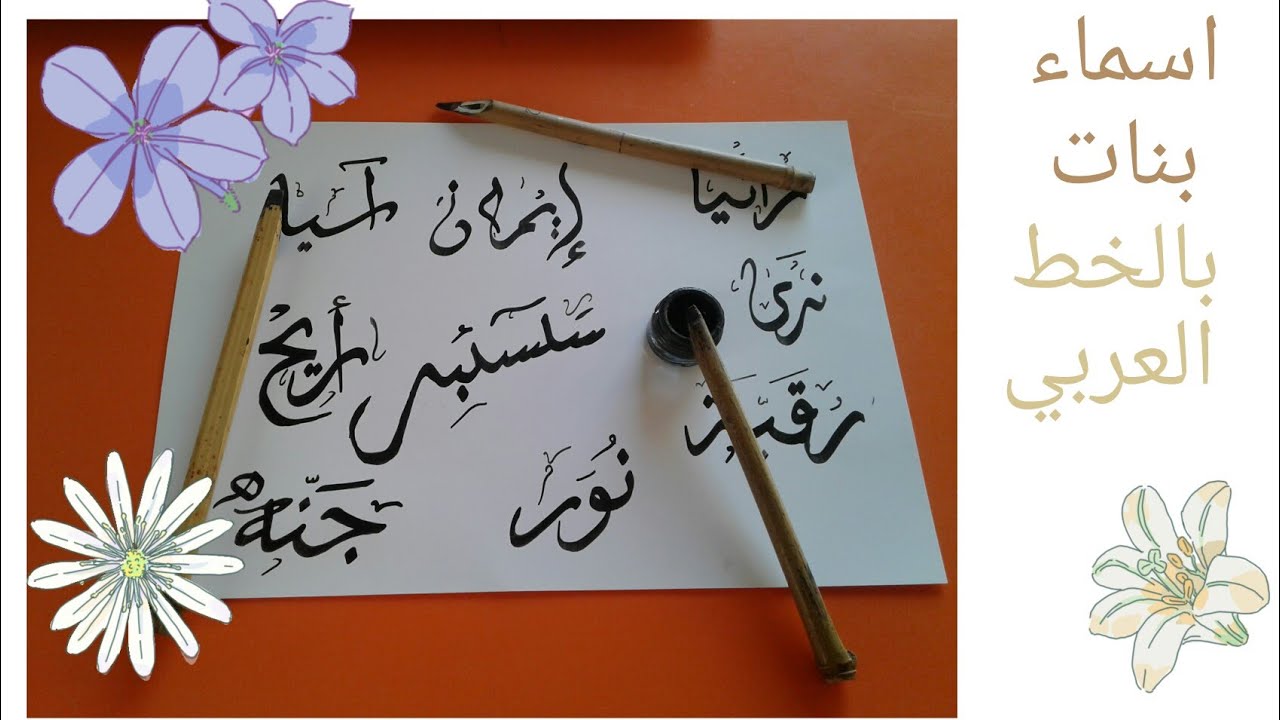 اسماء
بنات
بالخط
العربي
رانيا
إيمان
لميا
ندى
سلسبيل
أريج
رقية
نُور
جَنّه